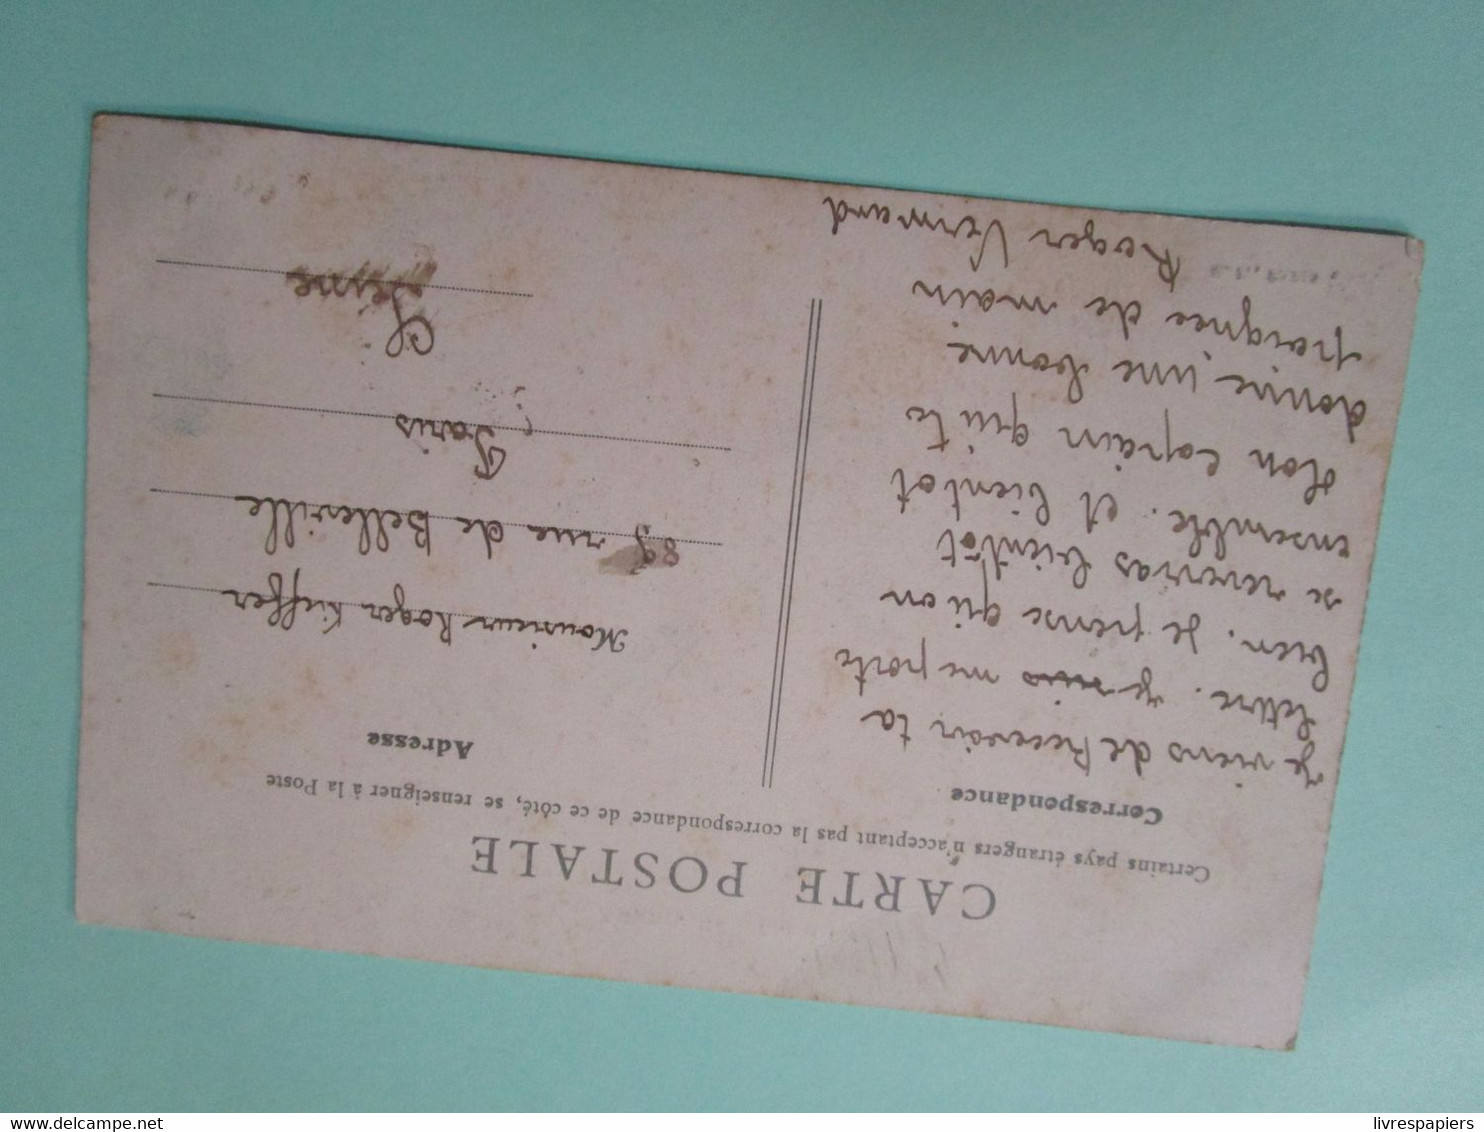 CARTE POSTALE
Certains pays étrangers n'acceptant pas la correspondance de ce côté, se renseigner à la Poste
Correspondance
Je viens de Recevoir ta
lettre. Je me porte
bien. Je pense qu'on
se reverras bientot
ensemble. et bientot
ton Copain qui te
donne une bonne
poignee de main
Roger Vermand
Adresse
Monsieur Roger Kieffer
89 rue de Belleville
Paris
Seine
delcampe.net
livrespapiers